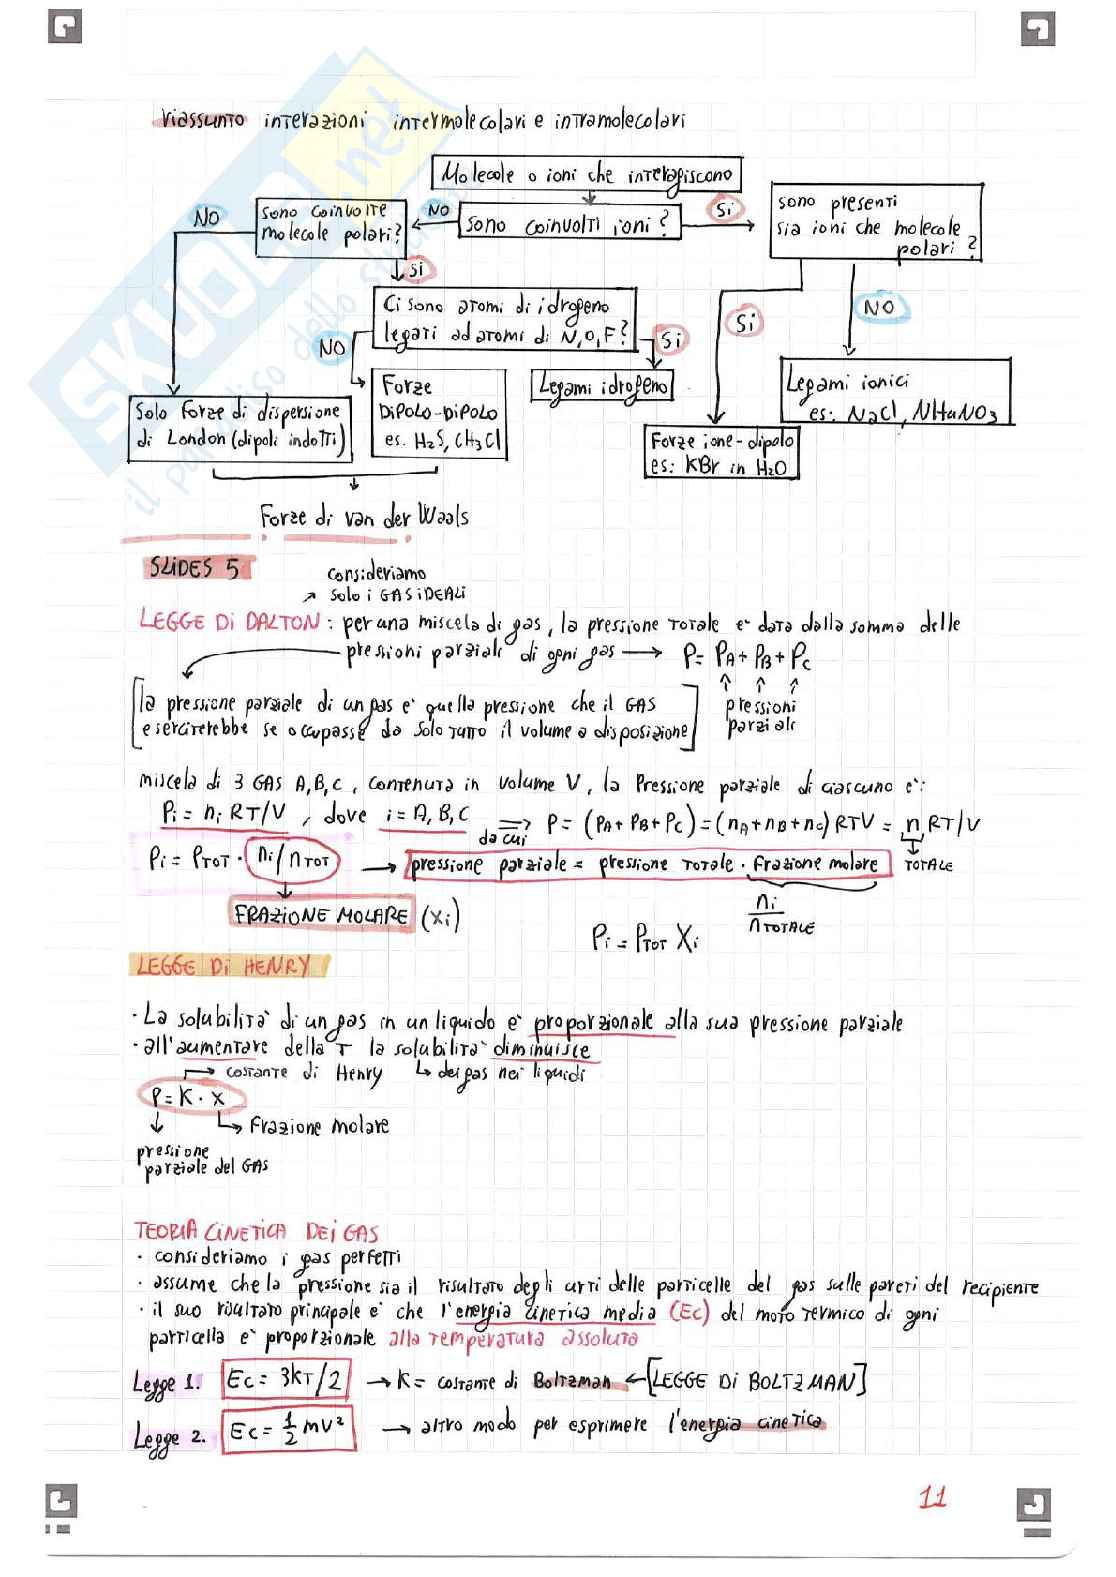 riassunto interazioni intermolecolari e intramolecolari
Molecole o ioni che interagiscono
NO
sono coinvolte
molecole polari?
NO
sono coinvolti ioni?
Si
sono presenti
sia ioni che molecole
polari?
Si
Ci sono atomi di idrogeno
legati ad atomi di N,O,F?
NO
Si
Si
NO
Solo Forze di dispersione
di London (dipoli indotti)
Forze
DiPOLO-DiPOLO
es. H2S, CH3Cl
Legami idrogeno
Forze ione-dipolo
es: KBr in H2O
Legami ionici
es: NaCl, NH4NO3
Forze di van der Waals
SLiDES 5
consideriamo
↗ solo i GAS iDEALi
LEGGE Di DALTON: per una miscela di gas, la pressione totale e' data dalla somma delle
pressioni parziali di ogni gas → P= PA+PB+PC
↑ ↑ ↑
pressioni
parziali
[la pressione parziale di un gas e' quella pressione che il GAS
eserciterebbe se occupasse da solo tutto il volume a disposizione]
miscela di 3 GAS A,B,C, contenuta in volume V, la Pressione parziale di ciascuno e':
Pi = ni RT/V, dove i=A,B,C ⇒ da cui P= (PA+PB+PC)=(nA+nB+nC)RTV = n RT/V
Pi = PTOT · ni/nTOT → pressione parziale = pressione totale · frazione molare
TOTALE
FRAZiONE MOLARE (Xi)
ni
nTOTALE
Pi = PTOT Xi
LEGGE Di HENRY
· La solubilita' di un gas in un liquido e' proporzionale alla sua pressione parziale
· all'aumentare della T la solubilita' diminuisce
→ costante di Henry ↳ dei gas nei liquidi
P=K·X
↳ Frazione molare
pressione
parziale del GAS
TEORIA CiNETiCA DEi GAS
· consideriamo i gas perfetti
· assume che la pressione sia il risultato degli urti delle particelle del gas sulle pareti del recipiente
· il suo risultato principale e' che l'energia cinetica media (Ec) del moto termico di ogni
particella e' proporzionale alla temperatura assoluta
Legge 1. Ec = 3KT/2 → K= costante di Boltzman ← [LEGGE Di BOLTZMAN]
Legge 2. Ec = 1/2 mv² → altro modo per esprimere l'energia cinetica
11
SKUOLA.net
il paradiso dello studente